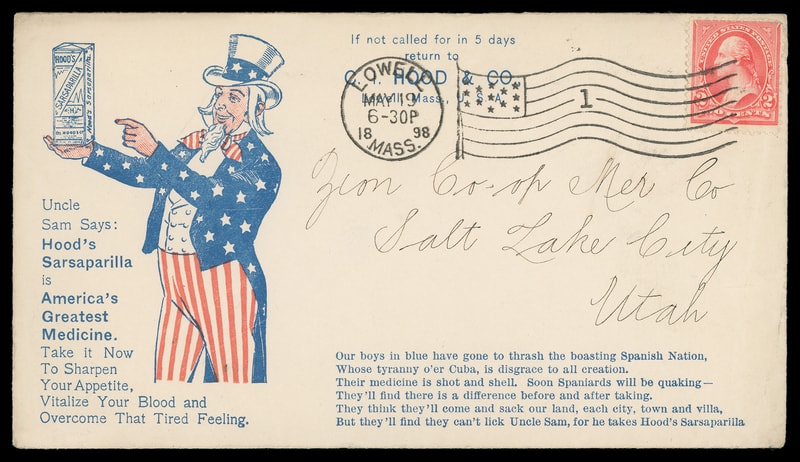 If not called for in 5 days
return to
C. I. HOOD & CO.
Lowell, Mass., U. S. A.
LOWELL
MAY 19
6-30P
18 98
MASS.
1
UNITED STATES POSTAGE
2 2
TWO CENTS
HOOD'S
SARSAPARILLA
Hood's Sarsaparilla
C. I. HOOD & CO.
Zion Co-op Mer Co
Salt Lake City
Utah
Uncle
Sam Says:
Hood's
Sarsaparilla
is
America's
Greatest
Medicine.
Take it Now
To Sharpen
Your Appetite,
Vitalize Your Blood and
Overcome That Tired Feeling.
Our boys in blue have gone to thrash the boasting Spanish Nation,
Whose tyranny o'er Cuba, is disgrace to all creation.
Their medicine is shot and shell. Soon Spaniards will be quaking—
They'll find there is a difference before and after taking.
They think they'll come and sack our land, each city, town and villa,
But they'll find they can't lick Uncle Sam, for he takes Hood's Sarsaparilla